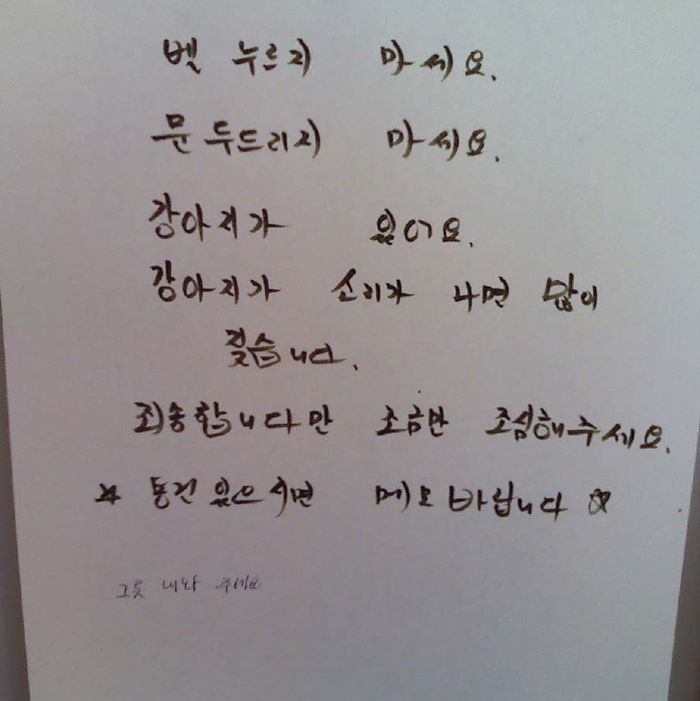 벨 누르지 마세요.
문 두드리지 마세요.
강아지가 있어요.
강아지가 소리가 나면 많이
짖습니다.
죄송합니다만 조금만 조심해주세요.
☆ 통건 있으시면 메모바랍니다 ☆
그릇 내와 주세요